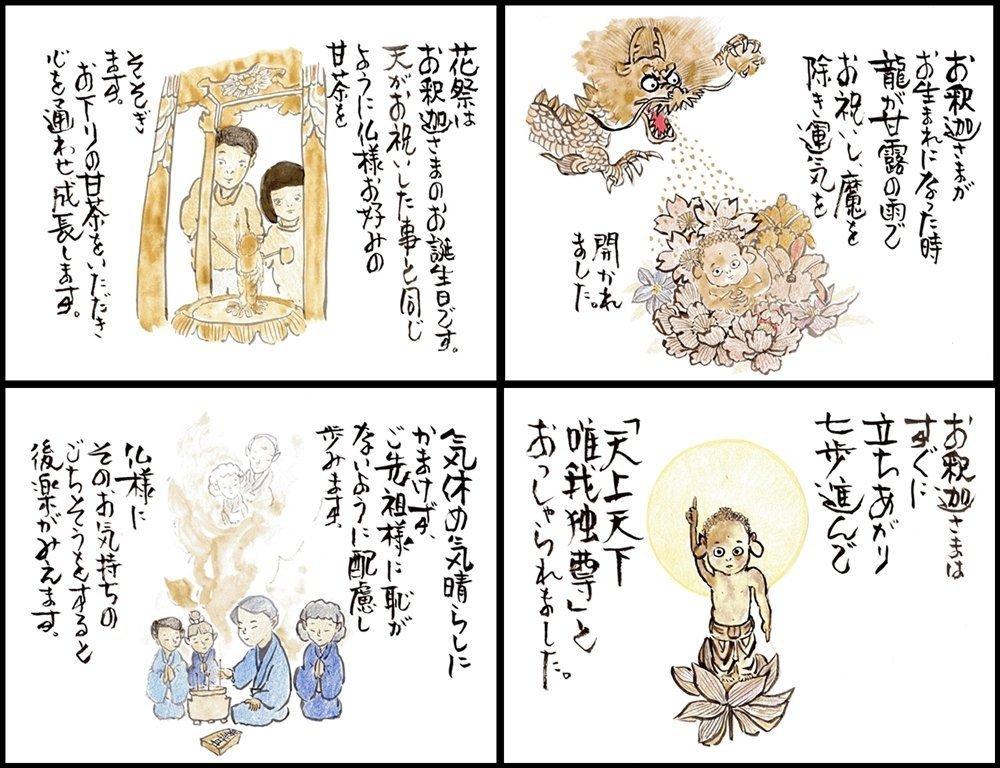 お釈迦さまが
お生まれになった時
龍が甘露の雨で
お祝いし、魔を
除き運気を
開かれ
ました。
お釈迦さまは
すぐに
立ちあがり
七歩進んで
「天上天下
唯我独尊」と
おっしゃられました。
花祭は
お釈迦さまのお誕生日です。
天がお祝いした事と同じ
ように仏様お好みの
甘茶を
そそぎ
ます。
お下りの甘茶をいただき
心を通わせ成長します。
気休め気晴らしに
かまけず、
ご先祖様に恥が
ないように配慮し
歩みます、
仏様に
そのお気持ちの
ごちそうをすると
後楽がみえます。